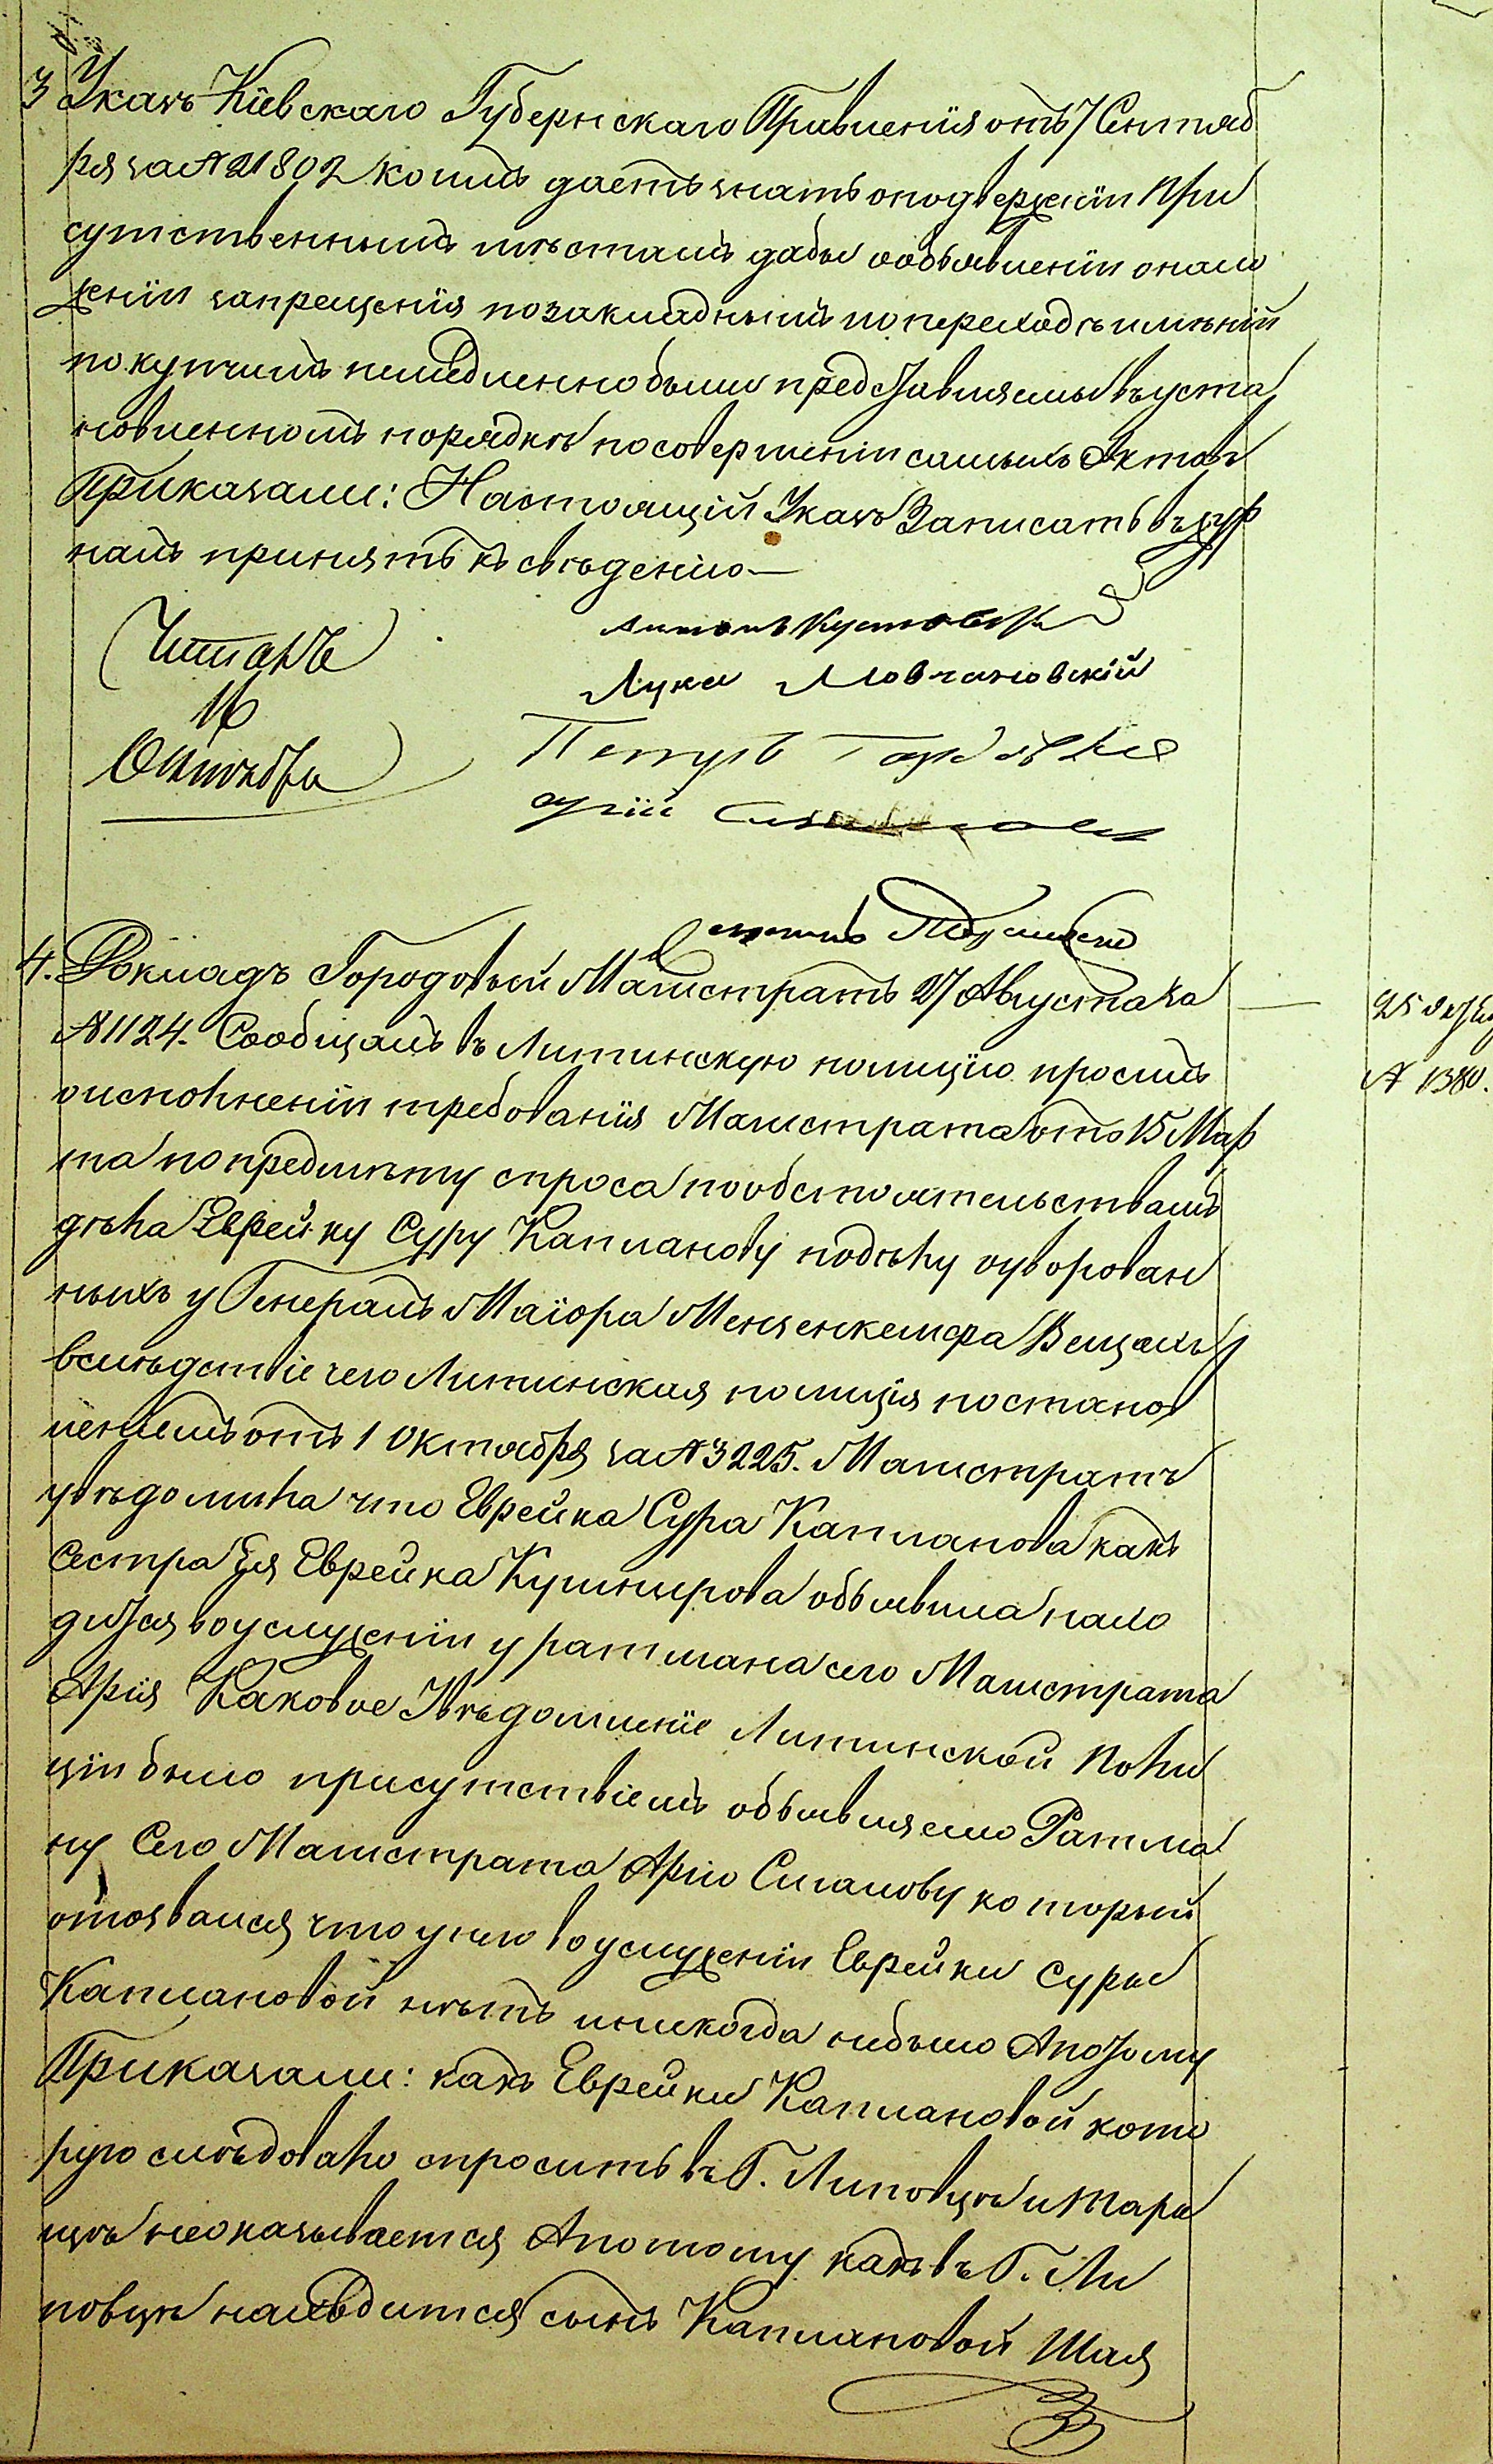 3 Указъ Кіевскаго Губернскаго Правленія отъ 7 Сентяб
ря за № 21802 коимъ даетъ знать о подтвержденіи При
сутственнымъ мѣстамъ дабы объявленіи о нало
женіи запрещенія по закладнымъ и о переходѣ имѣній
по купчимъ немедленно были представляемы въ уста
новленномъ порядкѣ по совершеніи самыхъ Актовъ
Приказали: Настоящій Указъ Записать въ жур
налъ принять къ свѣденію.—
Читанъ
16
Октября
Антонъ
Лука Мовчановскій
Петръ
Арій
4. Докладъ Городовый Магистратъ 27 Августа за
№ 1124. Сообщалъ въ Литинскую полицію просилъ
о исполненіи требованія Магистрата отъ 15 Мар
та по предмѣту спроса по обстоятельствамъ
дѣла Еврейку Суру Капланову по дѣлу о уворован
ныхъ у Генералъ Маіора Менгенкемфа Вещахъ
вслѣдствіе чего Литинская полиція постанов
леніемъ отъ 1 Октября за № 3225. Магистратъ
увѣдомила что Еврейка Сура Капланова какъ
Сестра Ея Еврейка Кушнирова объявила нахо
дится во услуженіи у ратмана сего Магистрата
Арія Каковое Увѣдомленіе Литинской Поли
ціи было присутствіемъ объявляемо Ратма
ну Сего Магистрата Арію Сигалову который
отозвался что у него во услуженіи Еврейки Суры
Каплановой нѣтъ и никогда небыло А потому
Приказали: какъ Еврейки Каплановой кото
рую слѣдовало спросить въ Г. Липовцѣ и Тара
щѣ неоказывается А потому какъ въ Г. Ли
повцѣ находится сынъ Каплановой Шая
25
№ 1380.